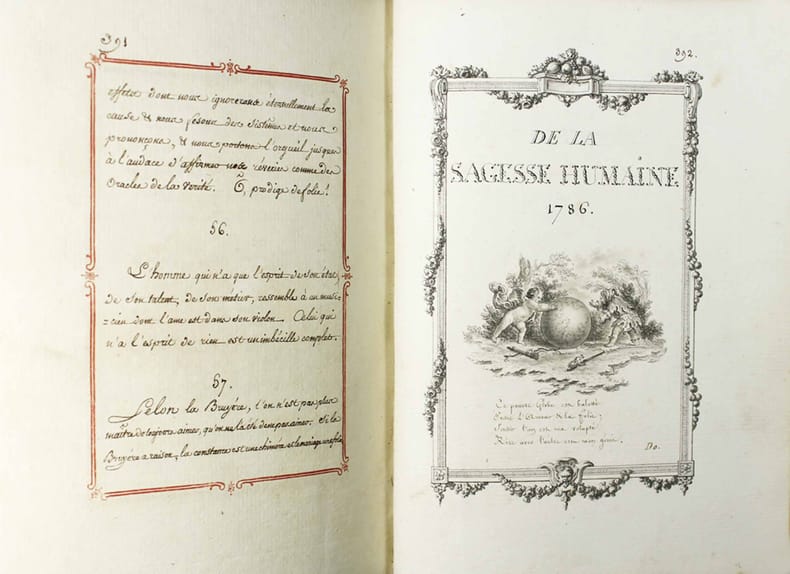 391
effets dont nous ignorerons éternellement la
cause & nous fesons des Sistêmes et nous
prononçons, & nous portons l'orgueil jusques
à l'audace d'affirmer nos rêveries comme des
Oracles de la vérité. Ô, prodige de folie!
56.
L'homme qui n'a que l'esprit de son état,
de son talent, de son métier, ressemble à un musi-
-cien dont l'ame est dans son violon. Celui qui
n'a l'esprit de rien est un imbécille complet.
57.
Selon la Bruyére, l'on n'est pas plus
maître de toujours aimer, qu'on ne l'a été de ne pas aimer. Si la
Bruyére a raison, la constance est une chimère et le mariage une folie
392.
DE LA
SAGESSE HUMAINE
1786.
Ce pauvre Globe est balotté
Entre l'Amour & la folie;
l'un est ma volupté
Rire avec l'autre est mon génie.
Do.